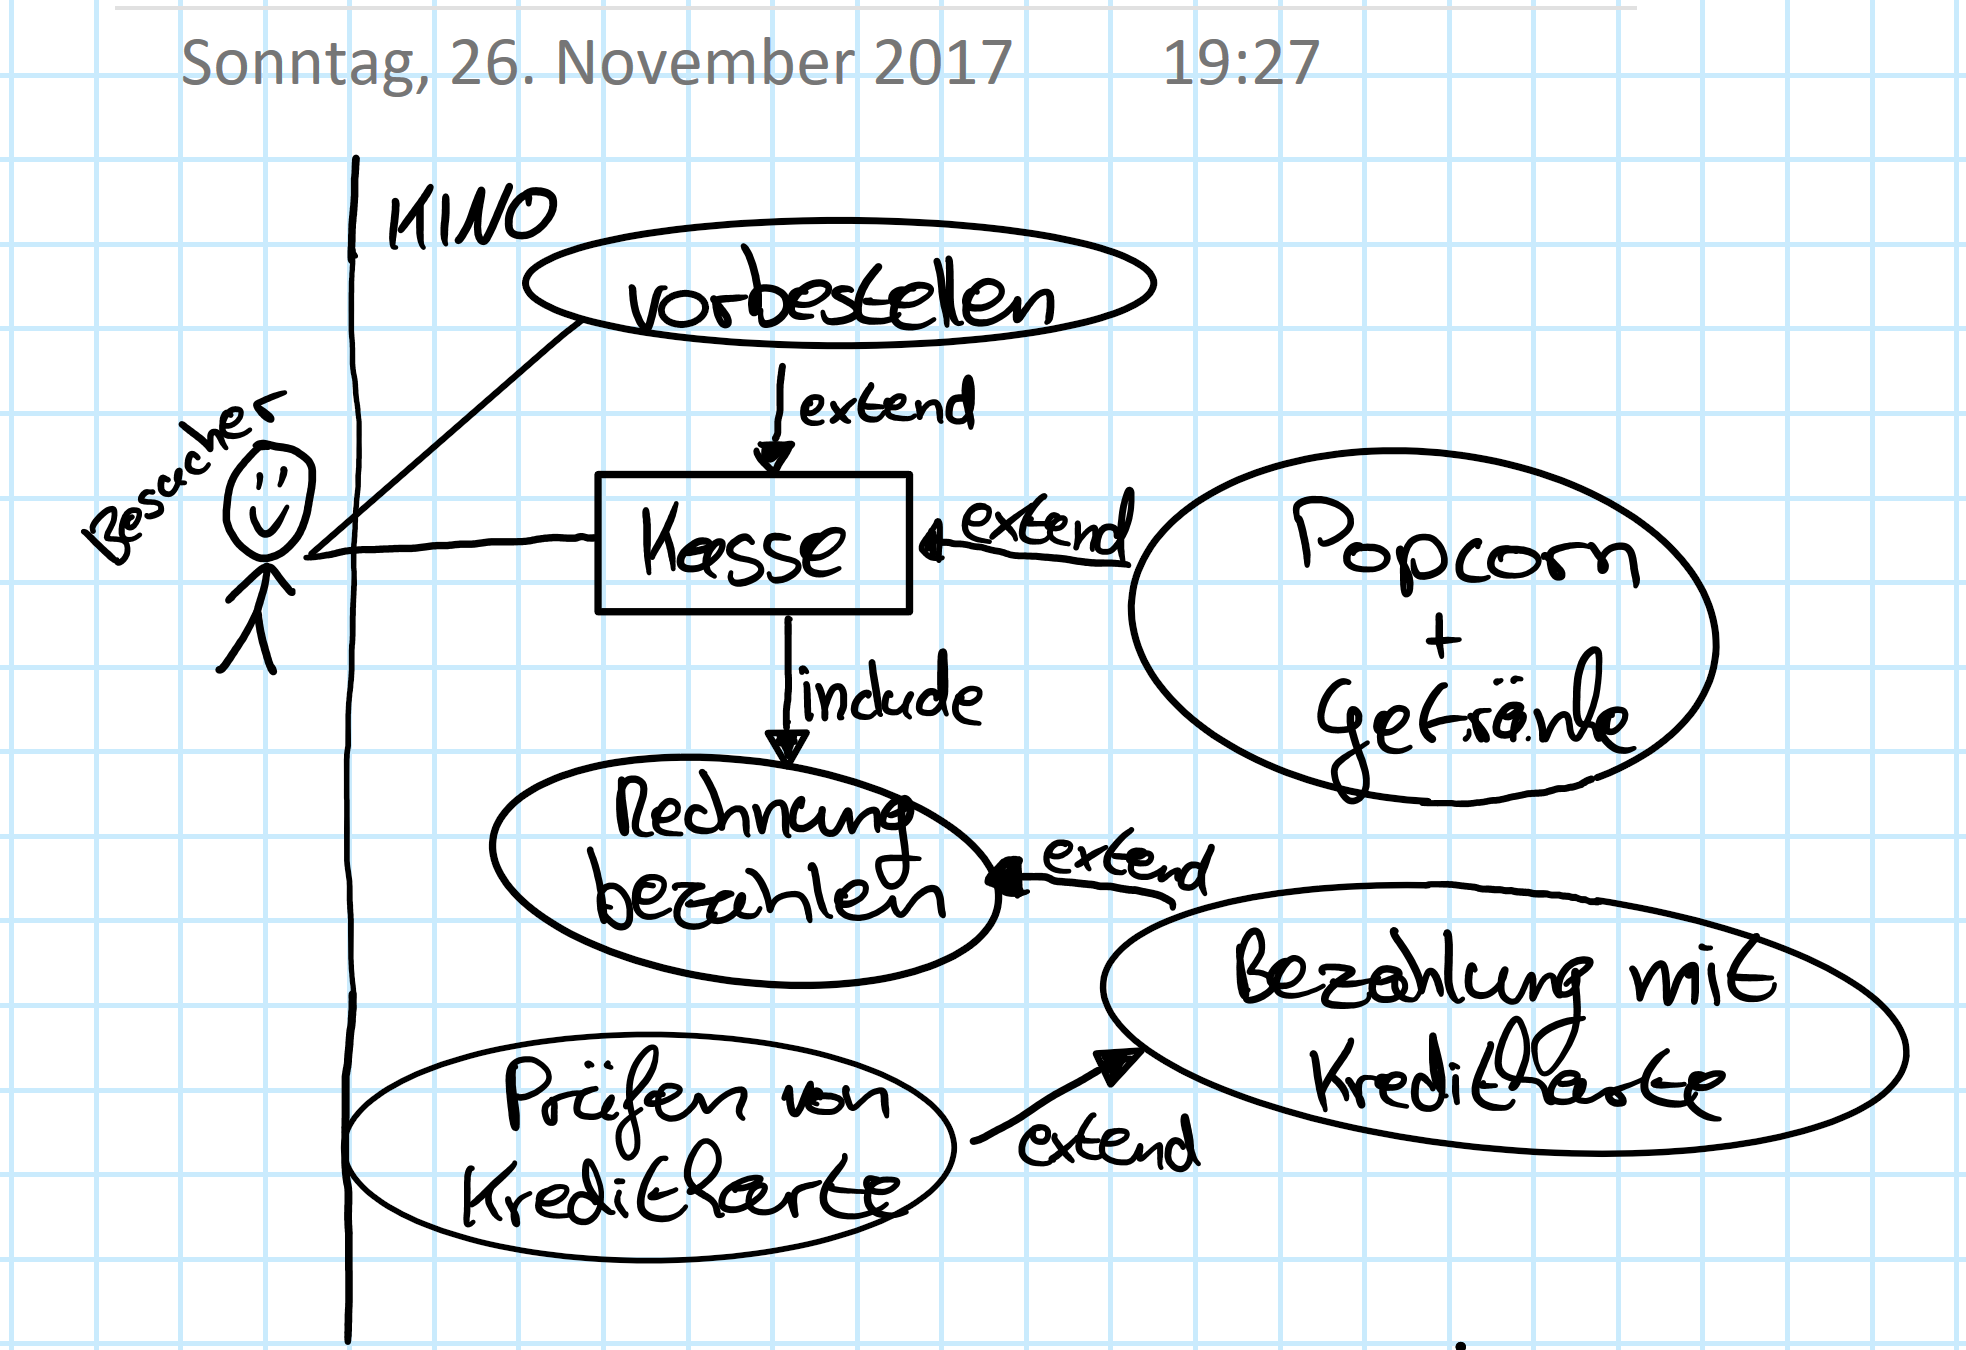 Sonntag, 26. November 2017 19:27
KINO
vorbestellen
extend
Besucher
Kasse
extend
Popcorn
+
Getränke
include
Rechnung
bezahlen
extend
Bezahlung mit
Kreditkarte
Prüfen von
Kreditkarte
extend